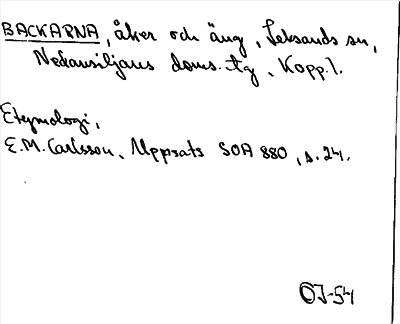 BACKARNA, åker och äng, Leksands sn,
Nedansiljans doms. tg, Kopp. l.
Etymologi,
E.M. Carlsson, Uppsats SOA 880, s. 24.
OJ-54